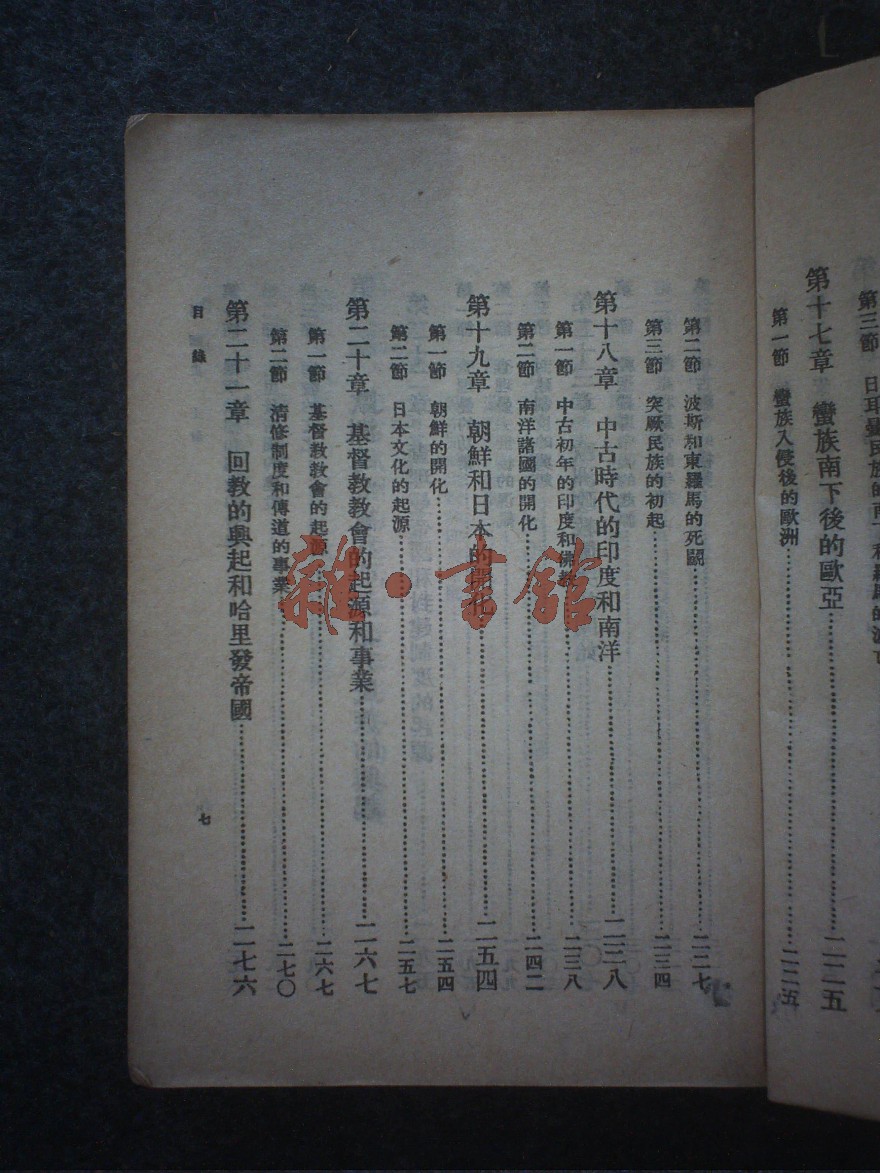 第三節　日耳曼民族的南下和羅馬的滅亡
第十七章　蠻族南下後的歐亞……二二五
第一節　蠻族入侵後的歐洲……二二五
第二節　波斯和東羅馬的死鬬……二二七
第三節　突厥民族的初起……二三四
第十八章　中古時代的印度和南洋……二三八
第一節　中古初年的印度和佛教……二三八
第二節　南洋諸國的開化……二四二
第十九章　朝鮮和日本的開化……二五四
第一節　朝鮮的開化……二五四
第二節　日本文化的起源……二五七
第二十章　基督教教會的起源和事業……二六七
第一節　基督教教會的起源……二六七
第二節　清修制度和傳道的事業……二七〇
第二十一章　回教的興起和哈里發帝國……二七六
目錄
七
雜·書館